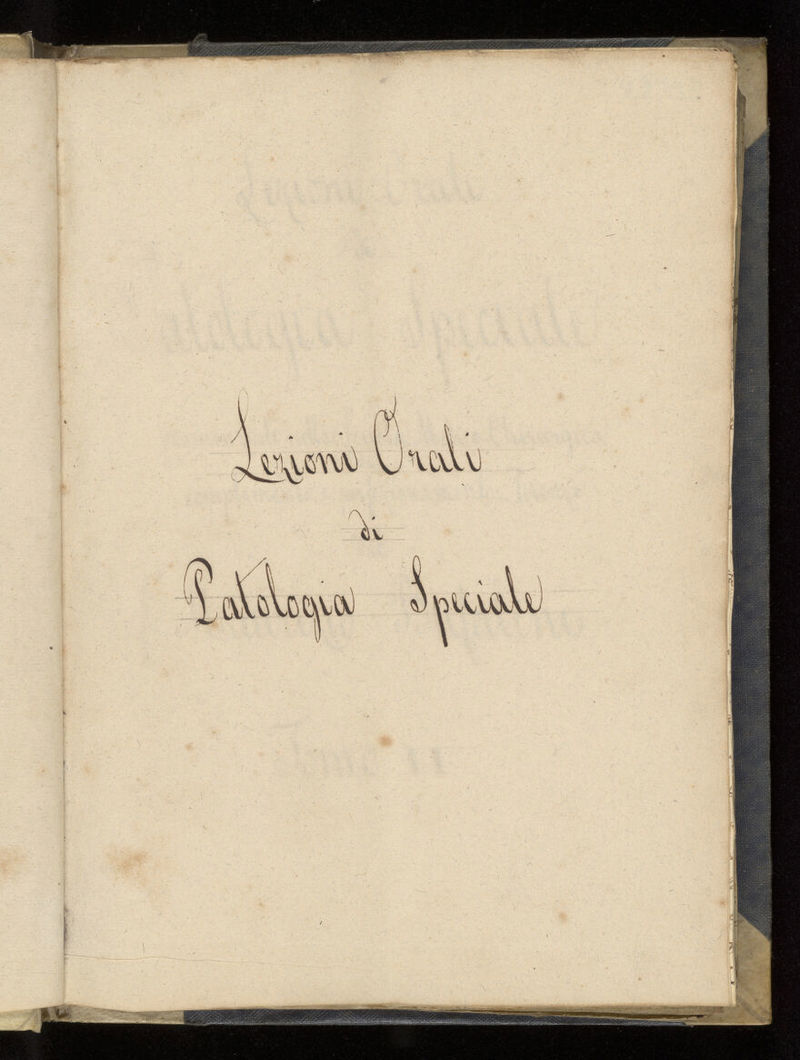 Lezioni Orali
di
Patologia Speciale